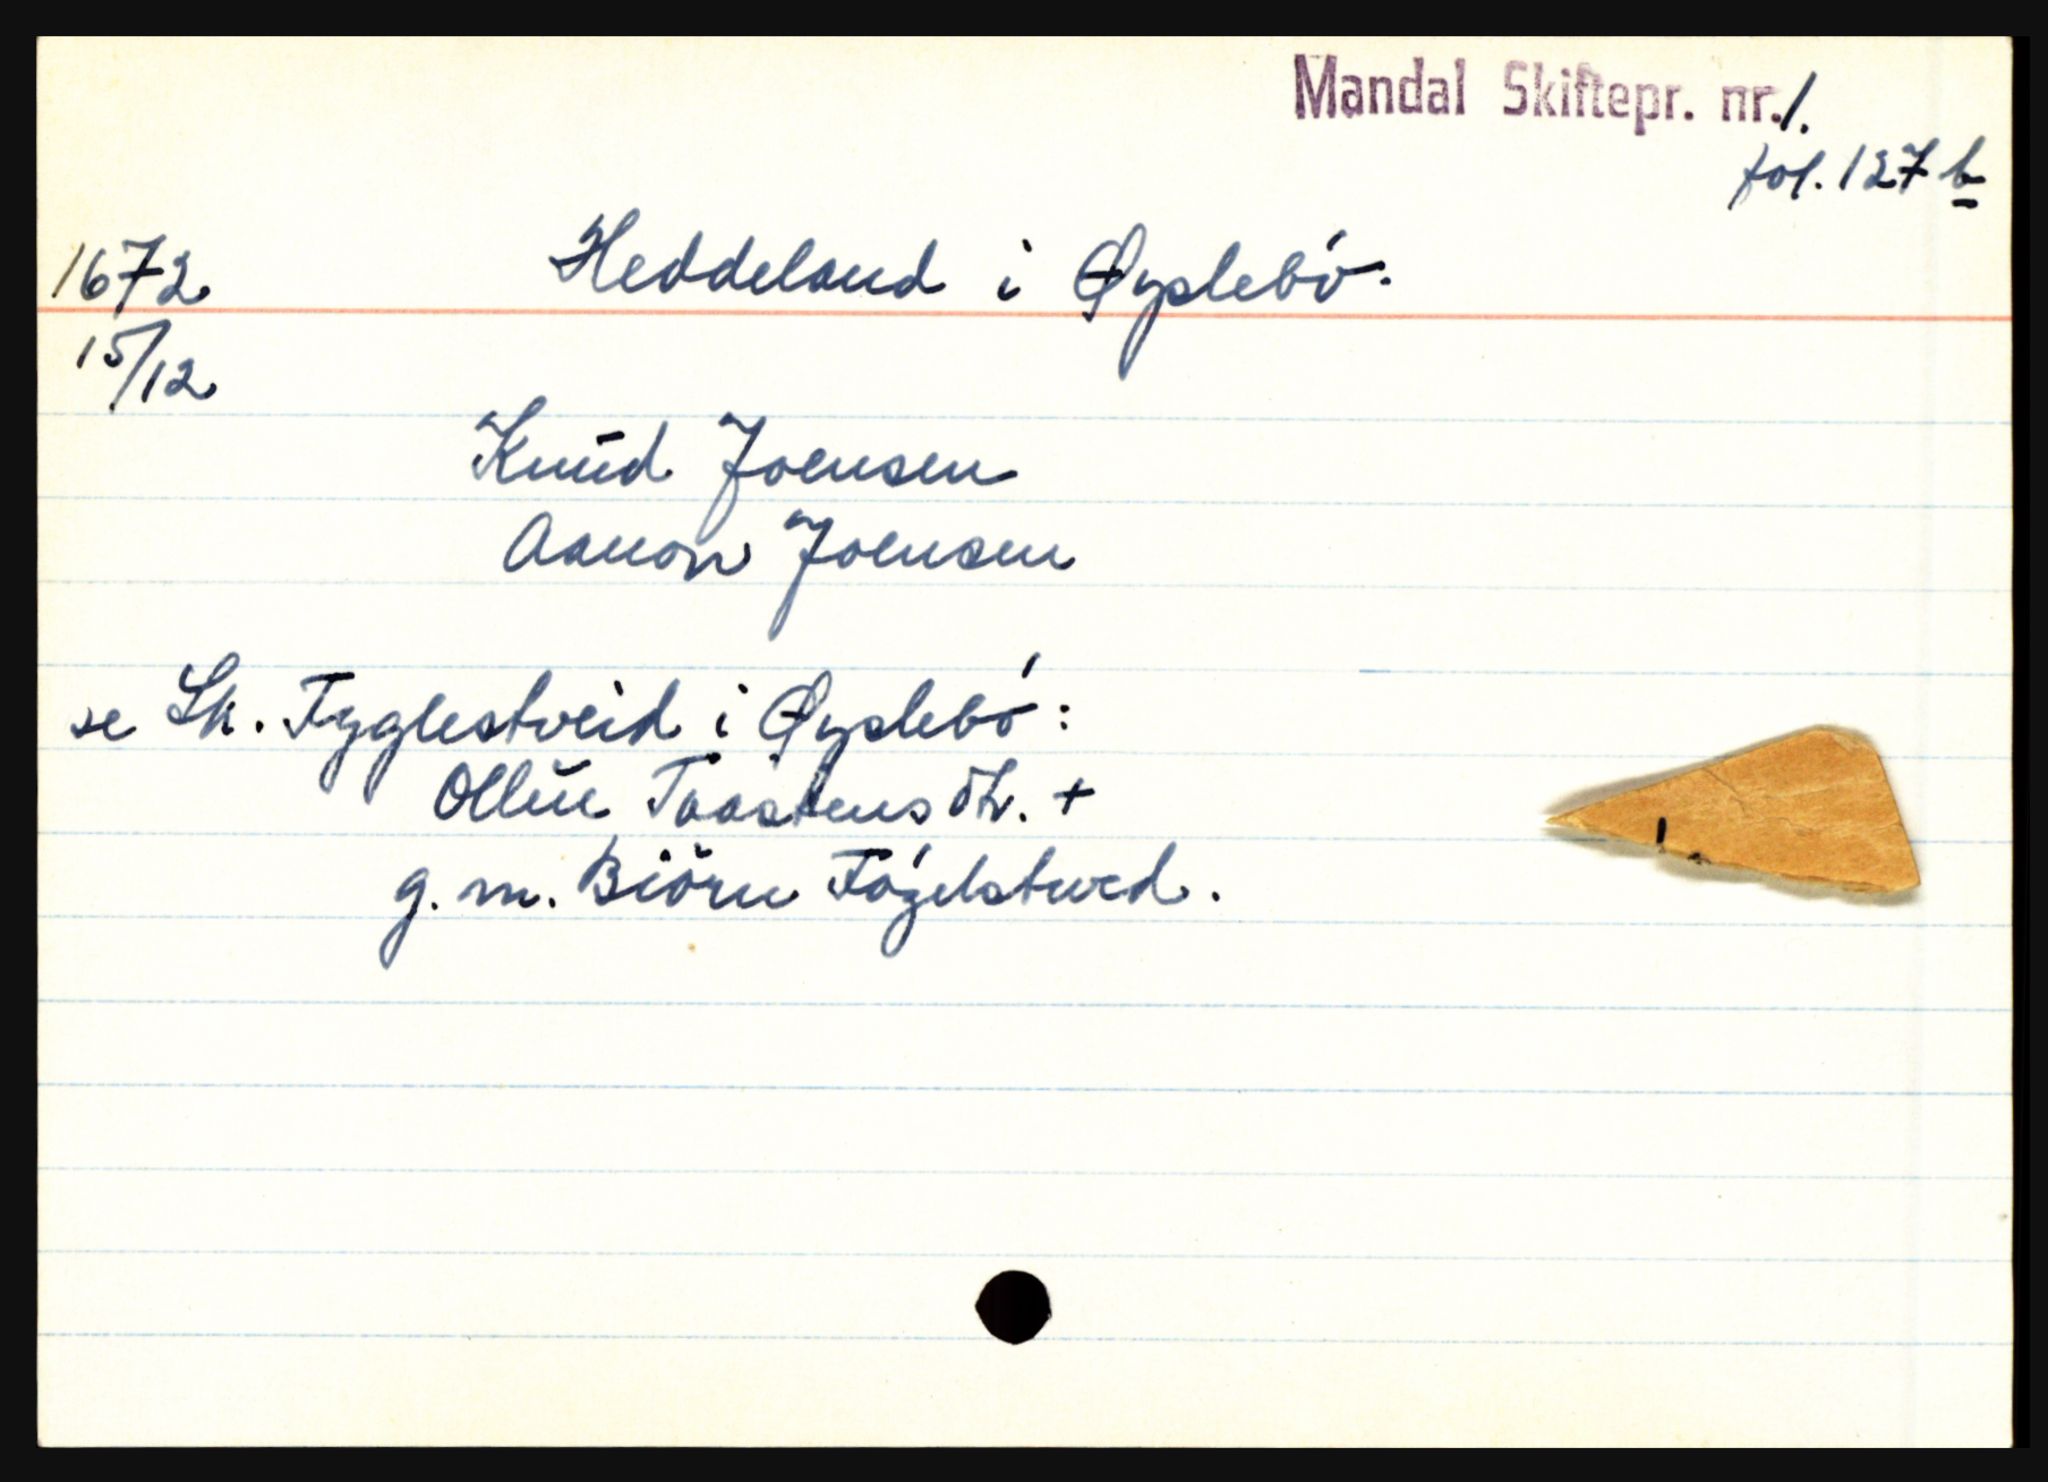 Mandal Skiftepr. nr. 1.
fol. 127 b
1672 Heddeland i Øyslebö.
15/12
Knud Joensen
Aanon Joensen
se Sk. Fyglestveid i Øyslebö:
Ollüe Taastensdtr. +
g. m. Biörn Fögelstwed.